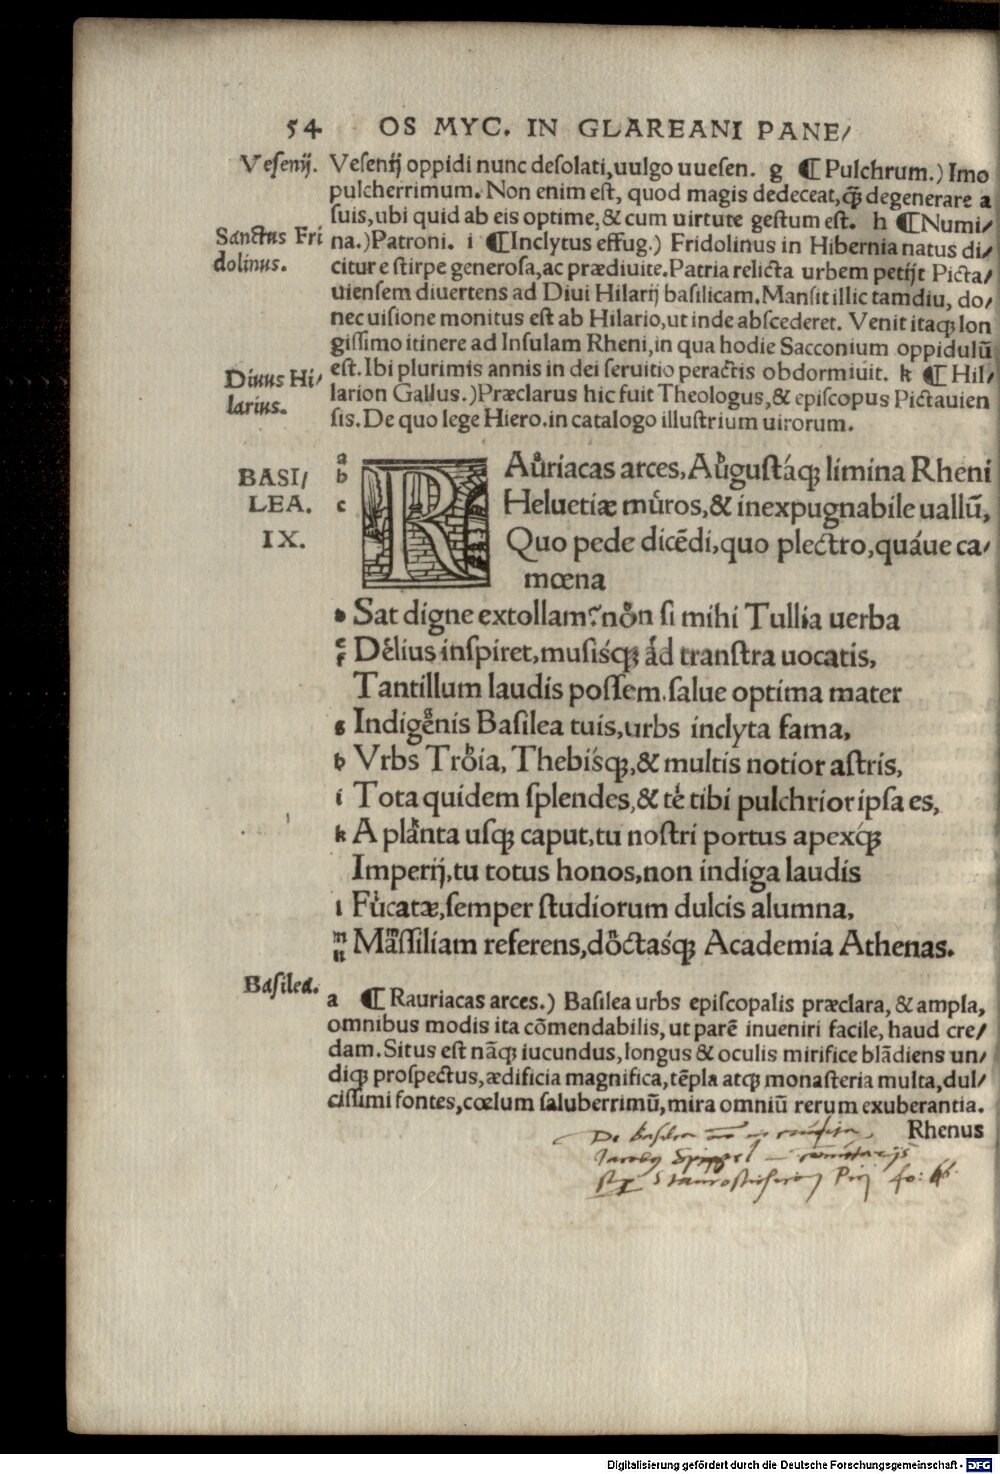 54 OS MYC. IN GLAREANI PANE/
Veſenij. Veſenij oppidi nunc deſolati,uulgo uueſen. g ¶Pulchrum.) Imo
pulcherrimum. Non enim eſt, quod magis dedeceat,q̃ degenerare a
ſuis,ubi quid ab eis optime,& cum uirtute geſtum eſt. h ¶Numi/
Sanctus Fri na.)Patroni. i ¶Inclytus effug.) Fridolinus in Hibernia natus di/
dolinus. citur e ſtirpe generoſa,ac prædiuite.Patria relicta urbem petijt Picta/
uienſem diuertens ad Diui Hilarij baſilicam.Manſit illic tamdiu, do/
nec uiſione monitus eſt ab Hilario,ut inde abſcederet. Venit itaqꝫ lon
giſſimo itinere ad Inſulam Rheni,in qua hodie Sacconium oppidulũ
Diuus Hi/ eſt.Ibi plurimis annis in dei ſeruitio peractis obdormiuit. k ¶Hil/
larius. larion Gallus.)Præclarus hic fuit Theologus,& epiſcopus Pictauien
ſis.De quo lege Hiero.in catalogo illuſtrium uirorum.
BASI/
LEA.
IX.
a
b RAuriacas arces,Auguſtáqꝫ limina Rheni
c Heluetiæ muros,& inexpugnabile uallũ,
Quo pede dicẽdi,quo plectro,quáue ca/
mœna
d Sat digne extollam?non ſi mihi Tullia uerba
e
f Delius inſpiret,muſiśqꝫ ad tranſtra uocatis,
Tantillum laudis poſſem.ſalue optima mater
g Indigenis Baſilea tuis,urbs inclyta fama,
h Vrbs Troia, Thebiśqꝫ,& multis notior aſtris,
i Tota quidem ſplendes,& te tibi pulchrior ipſa es,
k A planta uſqꝫ caput,tu noſtri portus apex́qꝫ
Imperij,tu totus honos,non indiga laudis
l Fucatæ,ſemper ſtudiorum dulcis alumna,
m
n Maſſiliam referens,doctaśqꝫ Academia Athenas.
Baſilea.
a ¶Rauriacas arces.) Baſilea urbs epiſcopalis præclara, & ampla,
omnibus modis ita cõmendabilis, ut parẽ inueniri facile, haud cre/
dam.Situs eſt nãqꝫ iucundus,longus & oculis mirifice blãdiens un/
diqꝫ proſpectus,ædificia magnifica,tẽpla atqꝫ monaſteria multa,dul/
ciſſimi fontes,cœlum ſaluberrimũ,mira omniũ rerum exuberantia.
Rhenus
De Baſilea
Iacobus Spiegel
fo: 66.
Digitalisierung gefördert durch die Deutsche Forschungsgemeinschaft - DFG